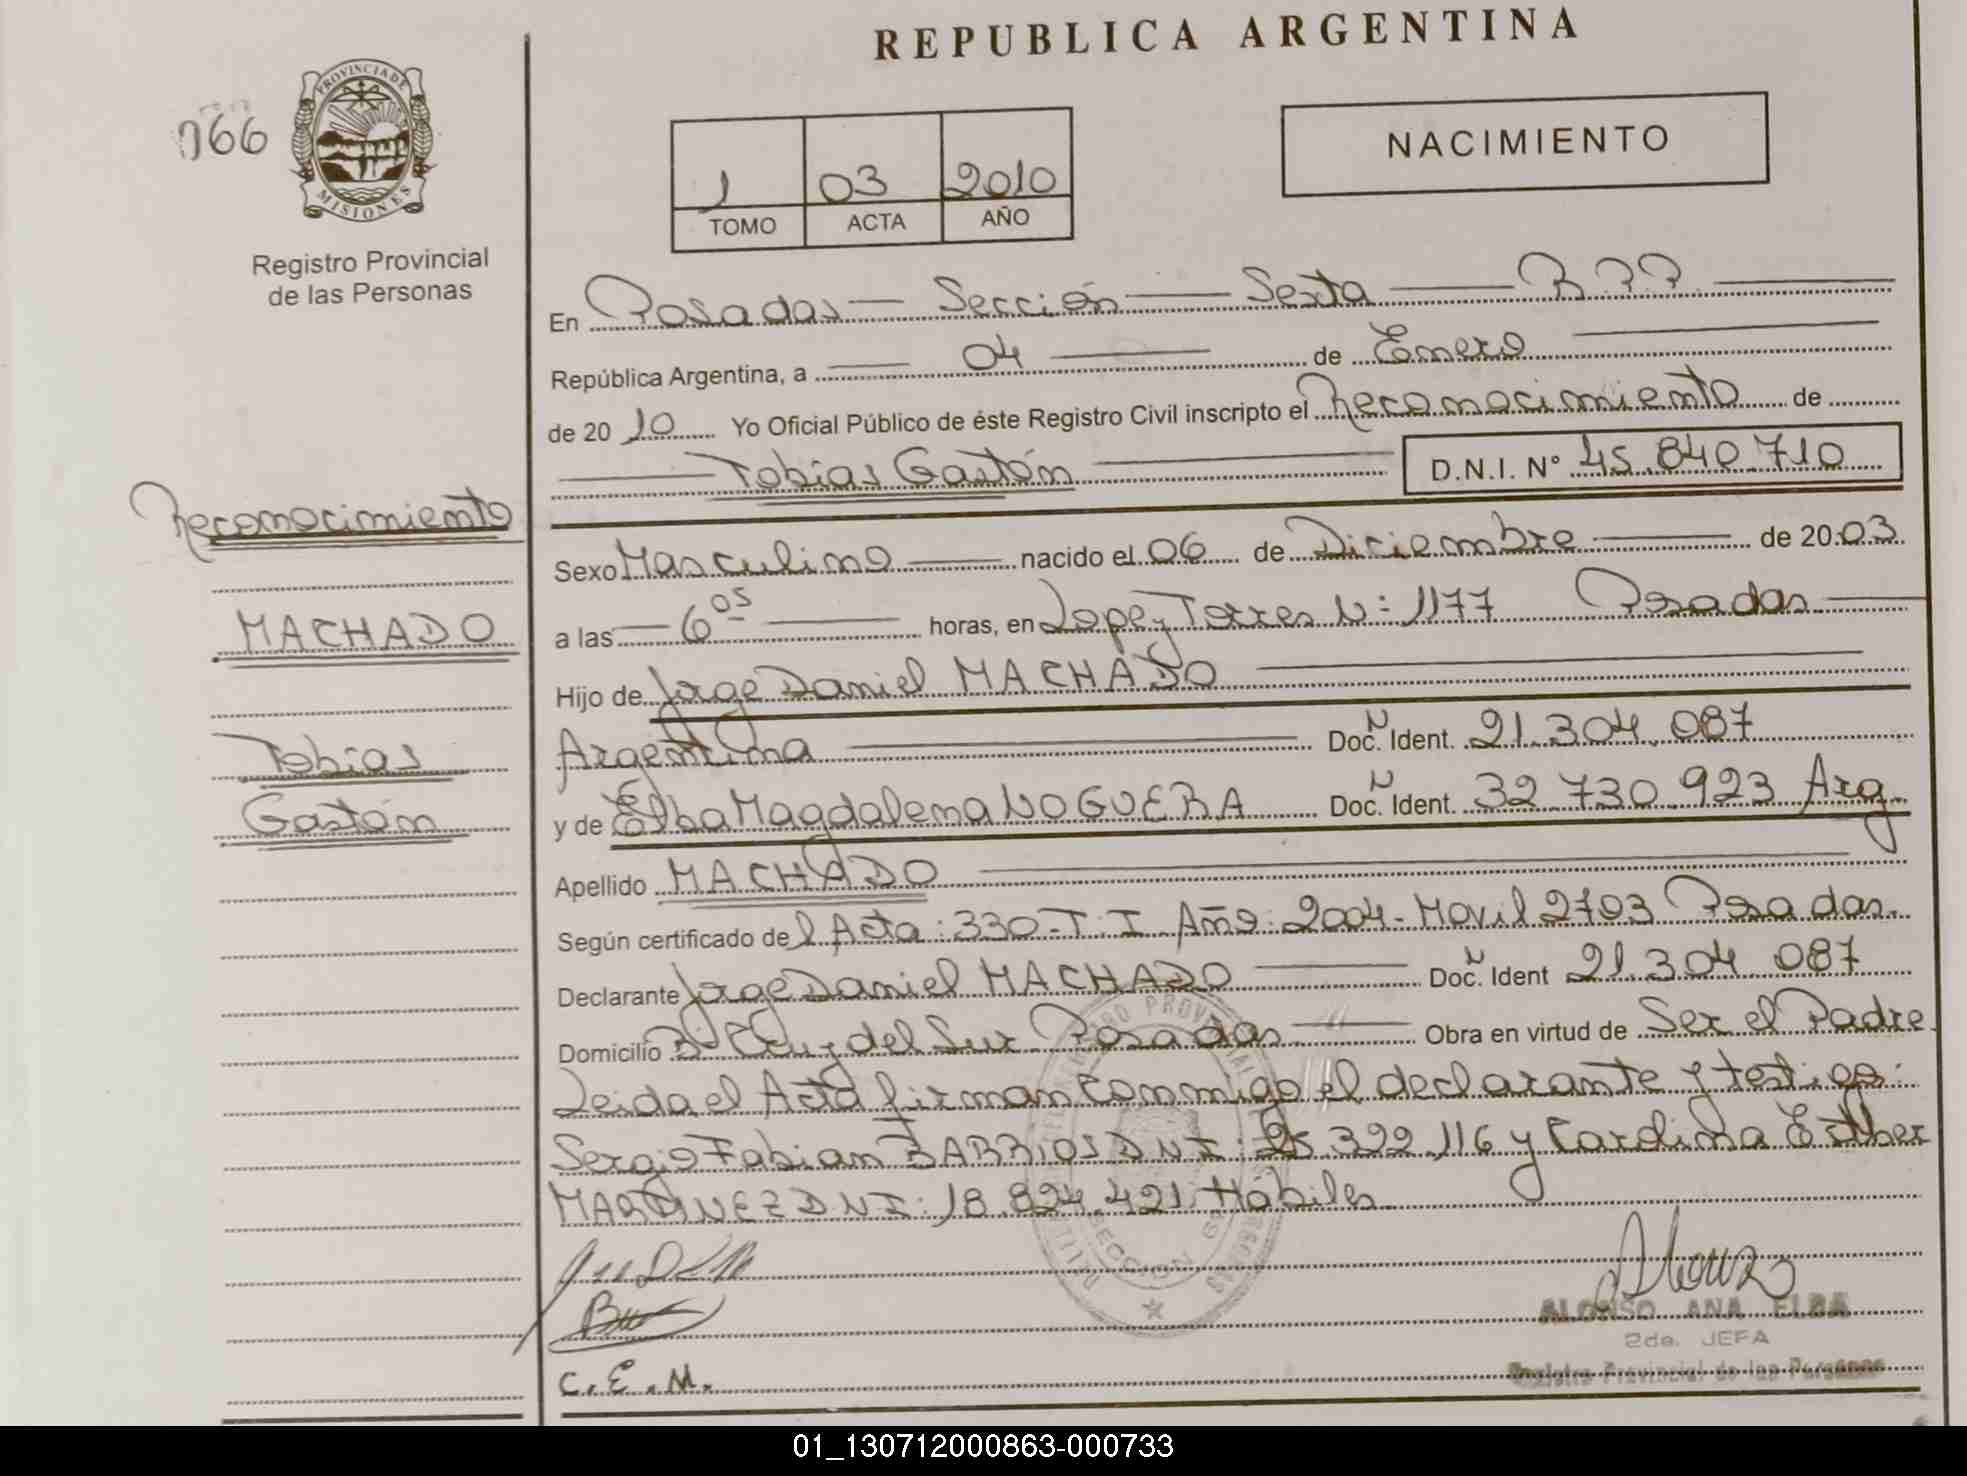 REPUBLICA ARGENTINA
066
PROVINCIA DE
MISIONES
Registro Provincial
de las Personas
1 03 2010
TOMO ACTA AÑO
NACIMIENTO
En Posadas - Sección - Sexta - R.P.P.
República Argentina, a 04 de Enero
de 2010 Yo Oficial Público de éste Registro Civil inscripto el Reconocimiento de
Tobías Gastón D.N.I. N° 45.840.710
Reconocimiento
MACHADO
Tobías
Gastón
Sexo Masculino nacido el 06 de Diciembre de 2003
a las 6 05 horas, en Lopez Torres N: 1177 Posadas
Hijo de Jorge Daniel MACHADO
Argentina Doc. Ident. N 21.304.087
y de Elba Magdalena NOGUERA Doc. Ident. N 32.730.923 Arg.
Apellido MACHADO
Según certificado del Acta: 330-T: I Año: 2004- Movil 2703 Posadas.
Declarante Jorge Daniel MACHADO Doc. Ident N 21.304.087
Domicilio B° Cruz del Sur Posadas Obra en virtud de Ser el Padre
Leida el Acta firman conmigo el declarante y testigo:
Sergio Fabian BARRIOS DNI: 25.322.116 y Cardina Esther
MARTINEZ DNI: 18.824.421 Hábiles
SECCION 6a
ALONSO ANA ELBA
2da. JEFA
Registro Provincial de las Personas
C.E.M.
01_130712000863-000733